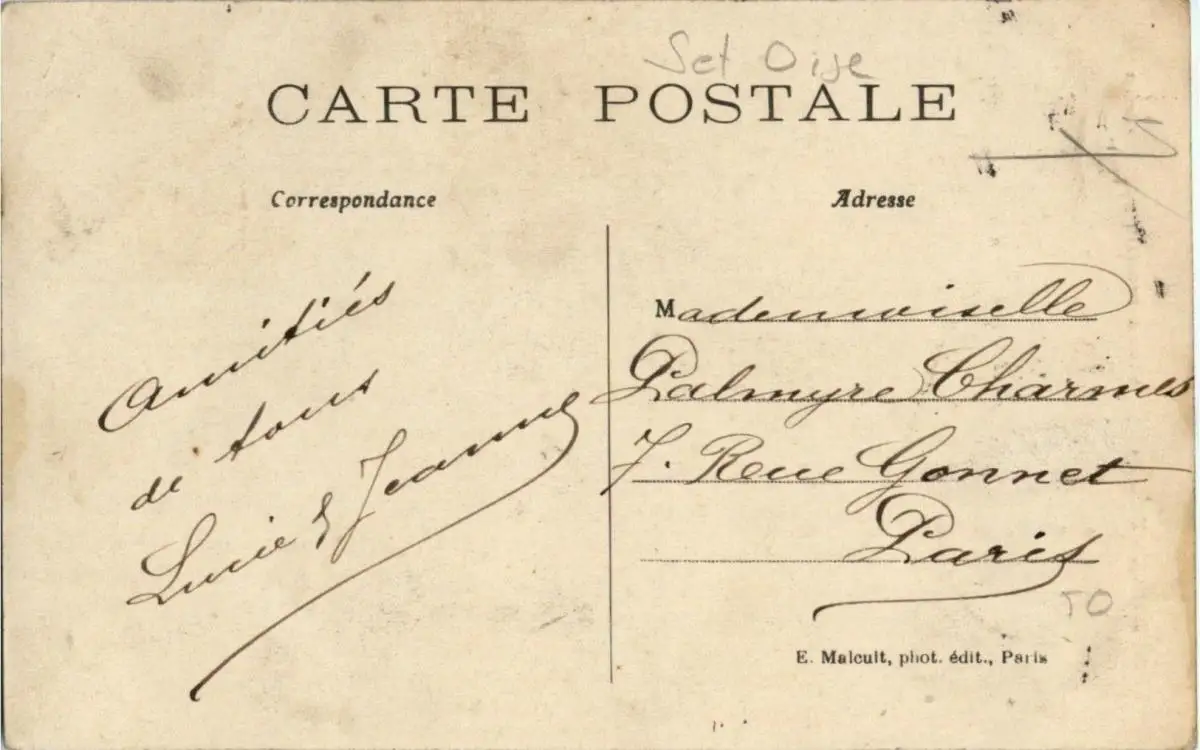 Set Oise
CARTE POSTALE
Correspondance
Adresse
Amitiés
de tous
Lucie & Jeanne
Mademoiselle
Palmyre Charmes
7. Rue Gonnet
Paris
50
E. Malcuit, phot. édit., Paris